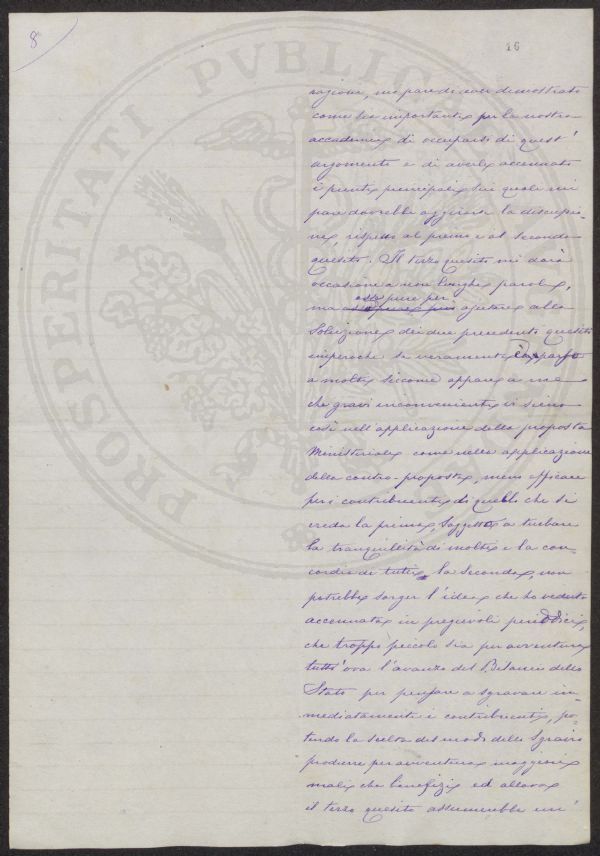 8
16
PROSPERITATI PVBLICAE
ragione, mi pare di aver dimostrato
come sia importante per la nostra
accademia di occuparsi di quest'
argomento e di averle accennato
i punti principali sui quali mi
pare dovrebbe aggirarsi la discussio-
ne, rispetto al primo e al secondo
quesito. Il terzo quesito mi darà
occasione a non lunghe parole,
esso pure per
ma ajutare alla
Soluzione dei due precedenti quesiti
imperochè se veramente apparso
a molti siccome appare a me
che gravi inconvenienti vi sieno
così nell'applicazione della proposta
Ministeriale come nella applicazione
della contro-proposta, meno efficace
per i contribuenti di quello che si
creda la prima, soggetto a turbare
la tranquillità di molti e la con-
cordia di tutti la seconda, non
potrebbe sorger l'idea che ho veduto
accennata in pregievoli periodici,
che troppo piccolo sia per avventura
tutt'ora l'avanzo del Bilancio dello
Stato per pensare a sgravare im-
mediatamente i contribuenti, po-
tendo la scelta del modo dello Sgravio
produrre per avventura maggiori
mali che benefizi ed allora
il terzo quesito assumerebbe un'